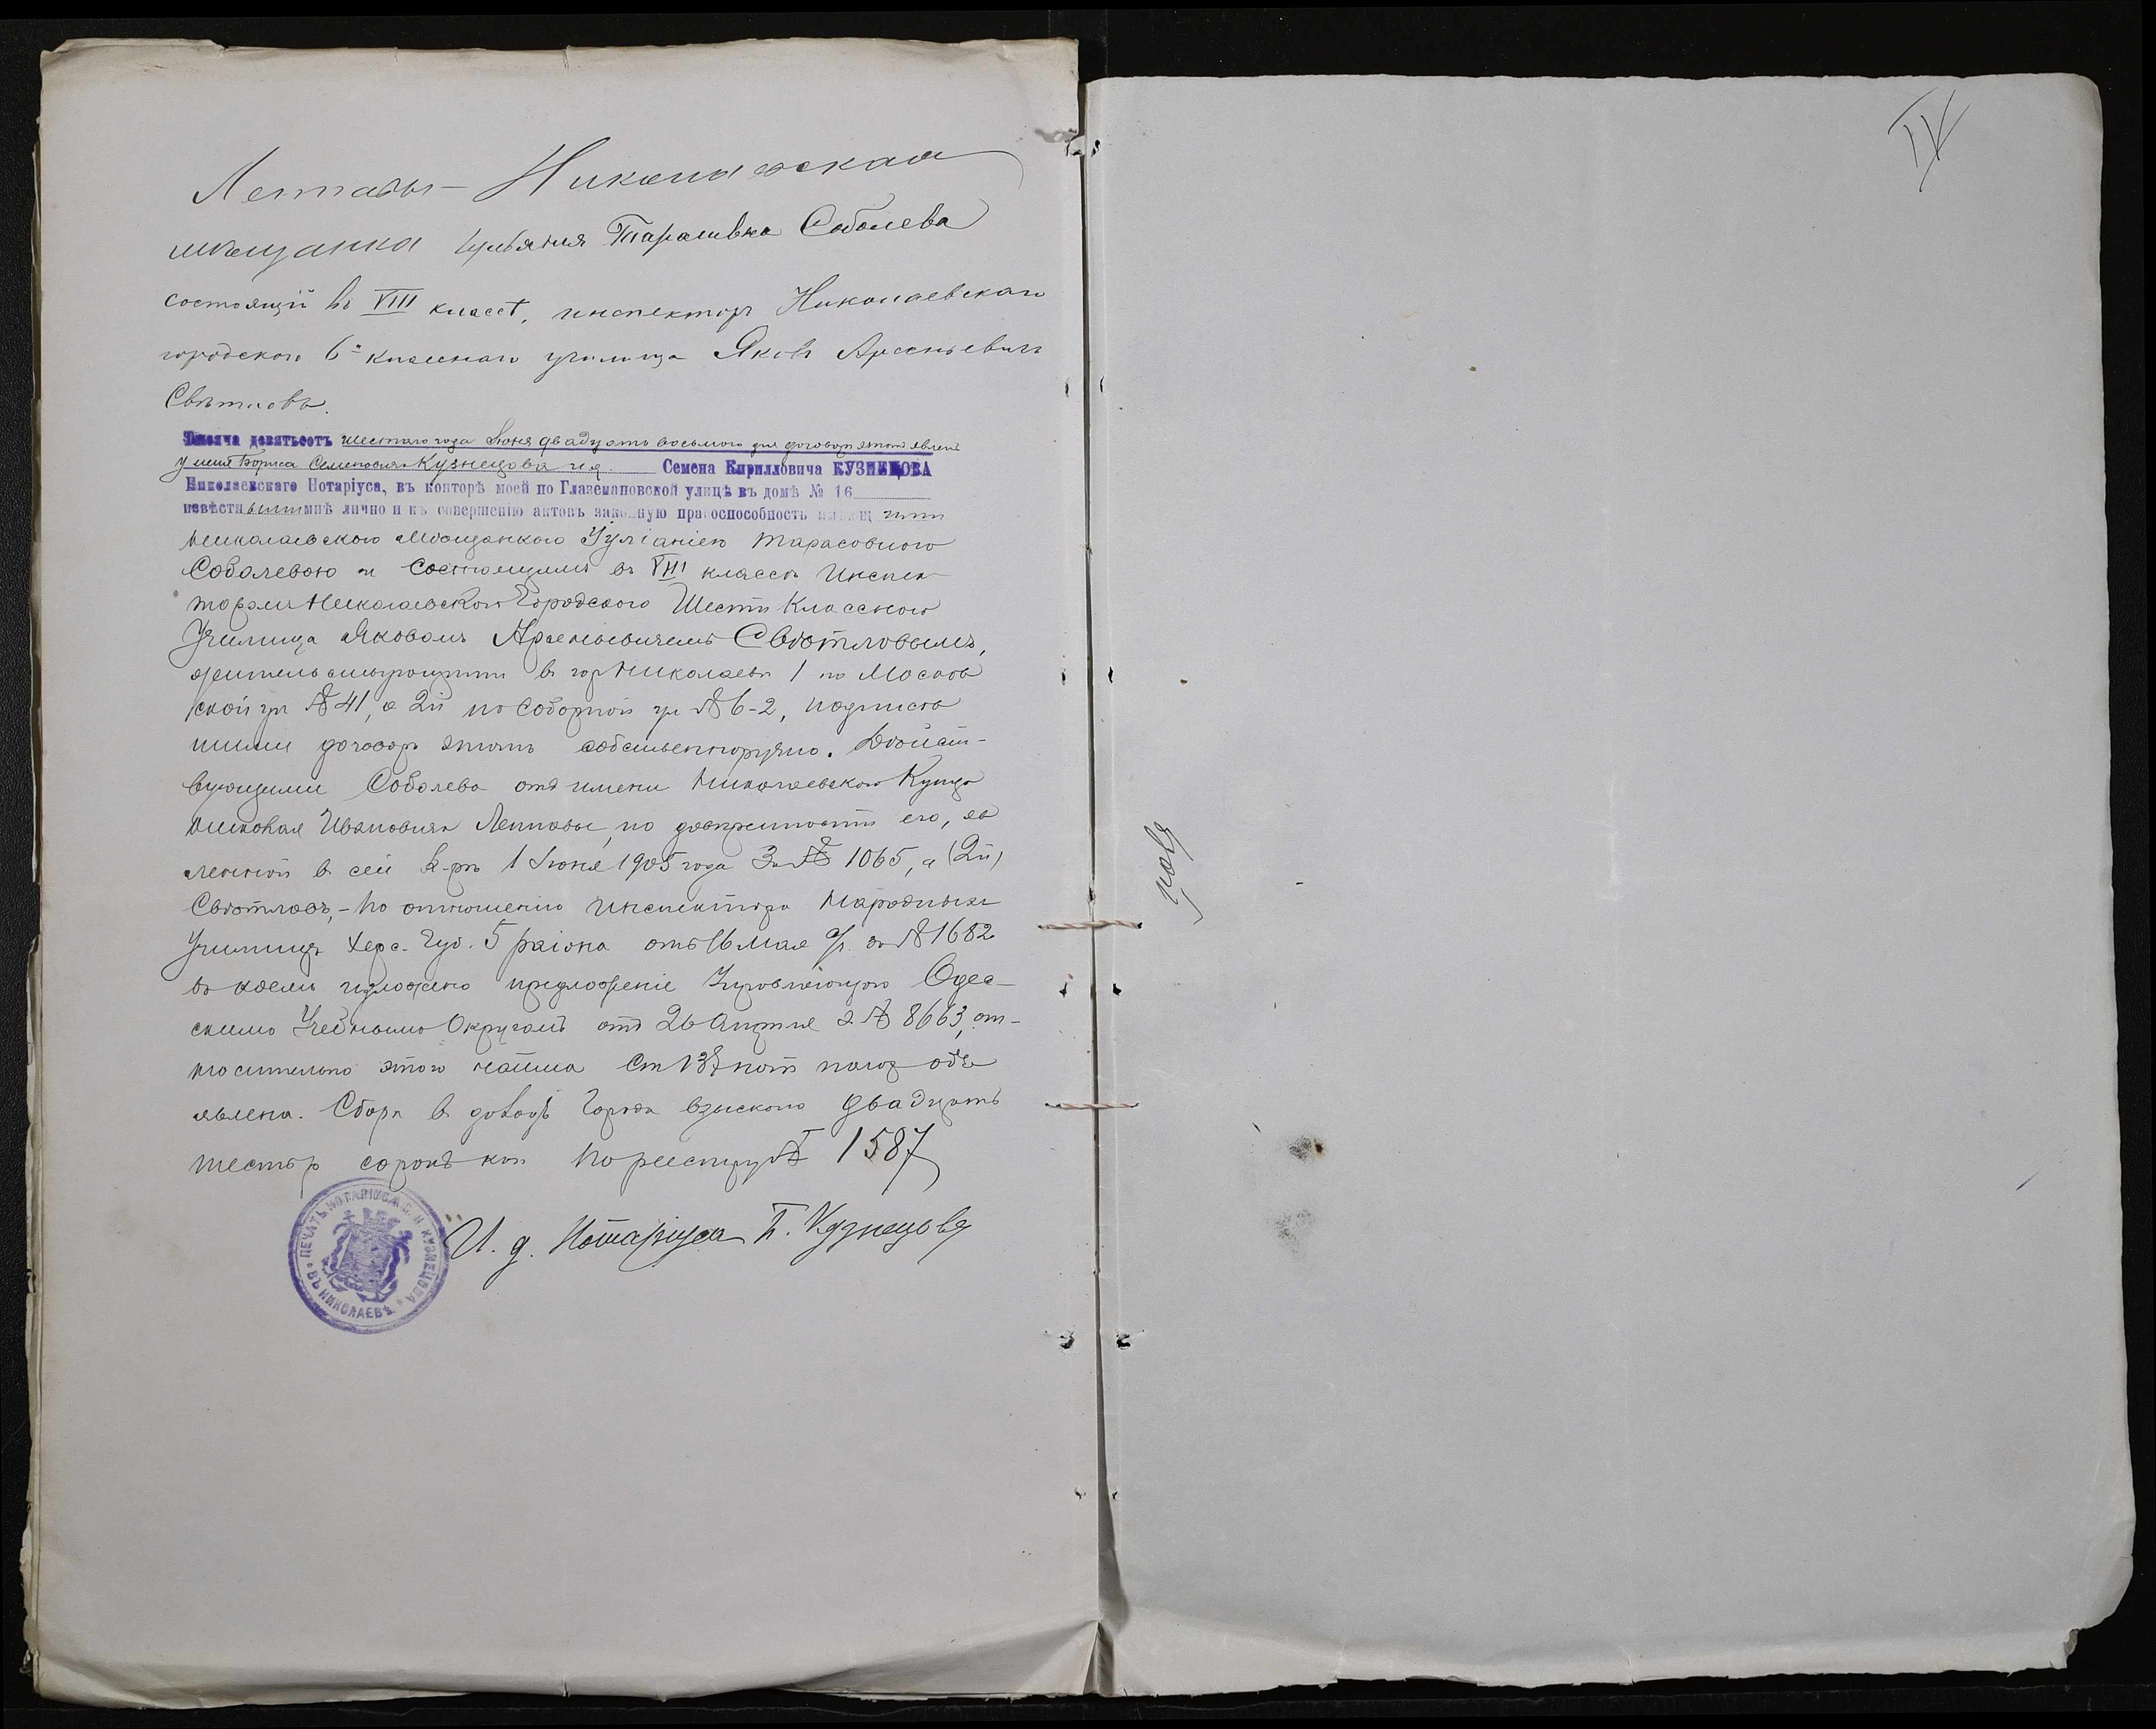 Леппасы – Николаевская
мѣщанка Ульянія Тарасивна Соболева
состоящій въ VIII классѣ, инспекторъ Николаевскаго
городского 6-и класснаго училища Яковъ Арсеньевичъ
Свѣтловъ.
Тысяча девятьсотъ шестаго года Іюня двадцать восьмого дня договоръ этотъ явленъ
у меня Бориса Семеновича Кузнецова и д. Семена Кирилловича КУЗНЕЦОВА
Николаевскаго Нотаріуса, въ конторѣ моей по Глазенаповской улицѣ въ домѣ № 16
извѣстными мнѣ лично и къ совершенію актовъ законную правоспособность имѣющими
Николаевскою Мѣщанкою Іуліаніею Тарасовною
Соболевою и Состоящимъ въ VIII классѣ Инспек-
торомъ Николаевскаго Городского Шести Класснаго
Училища Яковомъ Арсеньевичемъ Свѣтловымъ,
жительствующими въ гор Николаевѣ 1 по Москов
ской ул № 41, а 2й по Соборной ул № 6-2, подписав
шими договоръ этотъ собственноручно. Дѣйст-
вующими Соболева отъ имени Николаевскаго Купца
Николая Ивановича Леппасы, по довѣренности его, яв
ленной въ сей К-рѣ 1 Іюня 1905 года За № 1065, а (2й)
Свѣтловъ, – по отношенію Инспектора Народныхъ
Училищъ Херс. Губ. 5 раіона отъ 16 Мая с/г. за № 1682
въ коемъ изложено предложеніе Управляющаго Одес-
скимъ Учебнымъ Округомъ отъ 26 Апрѣля з № 8663, от-
носительно этого найма Ст 138 нот полож объ
явлена. Сбора въ доходъ Города взыскано двадцать
шесть р сорокъ коп По реестру № 1587
И. д. Нотаріуса Б. Кузнецовъ
ПЕЧАТЬ НОТАРІУСА С. К. КУЗНЕЦОВА
ВЪ НИКОЛАЕВѢ
IX